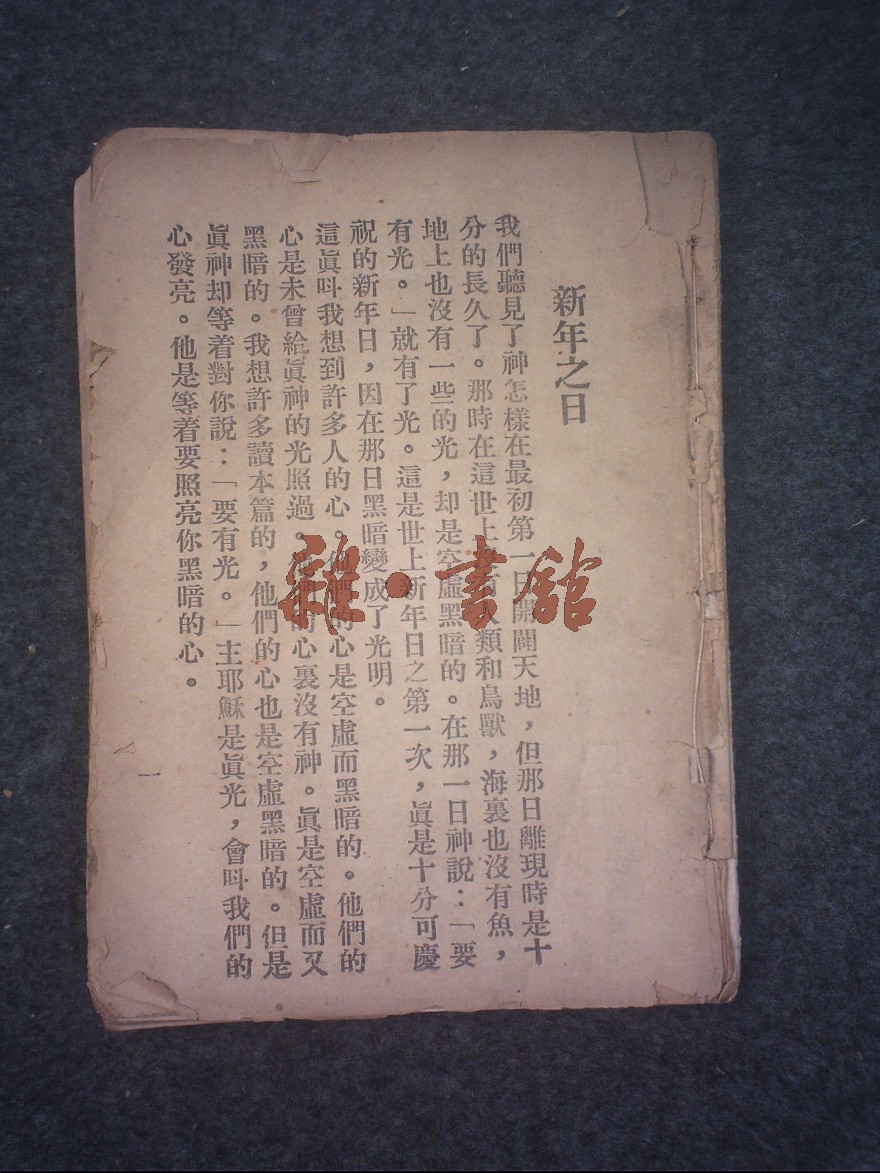 新年之日
我們聽見了神怎樣在最初第一日開闢天地，但那日離現時是十
分的長久了。那時在這世上沒有人類和鳥獸，海裏也沒有魚，
地上也沒有一些的光，却是空虛黑暗的。在那一日神說：「要
有光。」就有了光。這是世上新年日之第一次，眞是十分可慶
祝的新年日，因在那日黑暗變成了光明。
這眞呌我想到許多人的心。他們的心是空虛而黑暗的。他們的
心是未曾給眞神的光照過。他們的心裏沒有神。眞是空虛而又
黑暗的。我想許多讀本篇的，他們的心也是空虛黑暗的。但是
眞神却等着對你說：「要有光。」主耶穌是眞光，會呌我們的
心發亮。他是等着要照亮你黑暗的心。
一
雜·書館